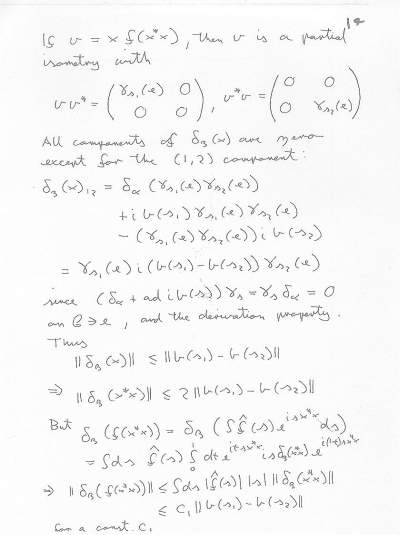 14
If v = x f(x*x), then v is a partial
isometry with
vv* = ( γ_{s_1}(e) 0 ; 0 0 ), v*v = ( 0 0 ; 0 γ_{s_2}(e) )
All components of δ_B(x) are zero
except for the (1,2) component:
δ_B(x)_{12} = δ_α (γ_{s_1}(e) γ_{s_2}(e))
+ i b(s_1) γ_{s_1}(e) γ_{s_2}(e)
- (γ_{s_1}(e) γ_{s_2}(e)) i b(s_2)
= γ_{s_1}(e) i (b(s_1) - b(s_2)) γ_{s_2}(e)
since (δ_α + ad i b(s)) γ_s = γ_s δ_α = 0
on B ∋ e, and the derivation property.
Thus
||δ_B(x)|| ≤ ||b(s_1) - b(s_2)||
⇒ ||δ_B(x*x)|| ≤ 2 ||b(s_1) - b(s_2)||
But δ_B(f(x*x)) = δ_B (∫ f̂(s) e^{isx*x} ds)
= ∫ds f̂(s) ∫_0^1 dt e^{itsx*x} is δ_B(x*x) e^{i(1-t)sx*x}
⇒ ||δ_B(f(x*x))|| ≤ ∫ds |f̂(s)| |s| ||δ_B(x*x)||
≤ C_1 ||b(s_1) - b(s_2)||
for a const. C_1